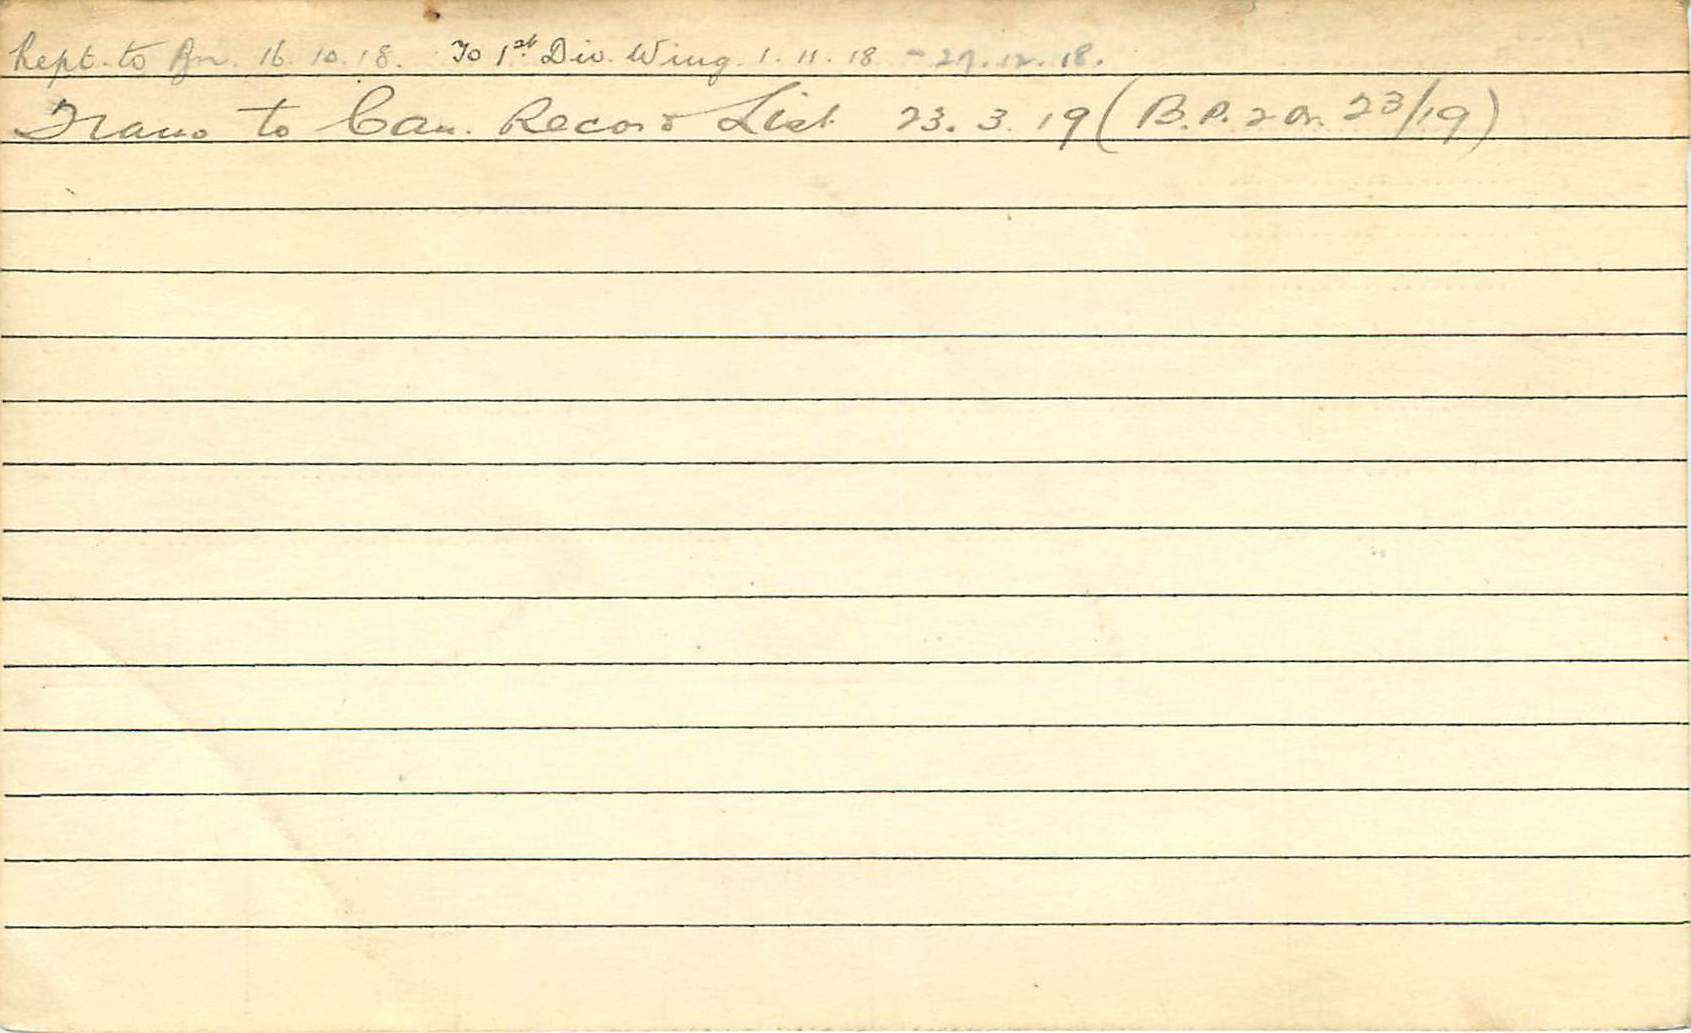 Rept. to Bn. 16.10.18. To 1st Div. Wing. 1.11.18 - 27.12.18.
Trans to Can. Record List 23.3.19 (B.P.2 Or. 23/19)